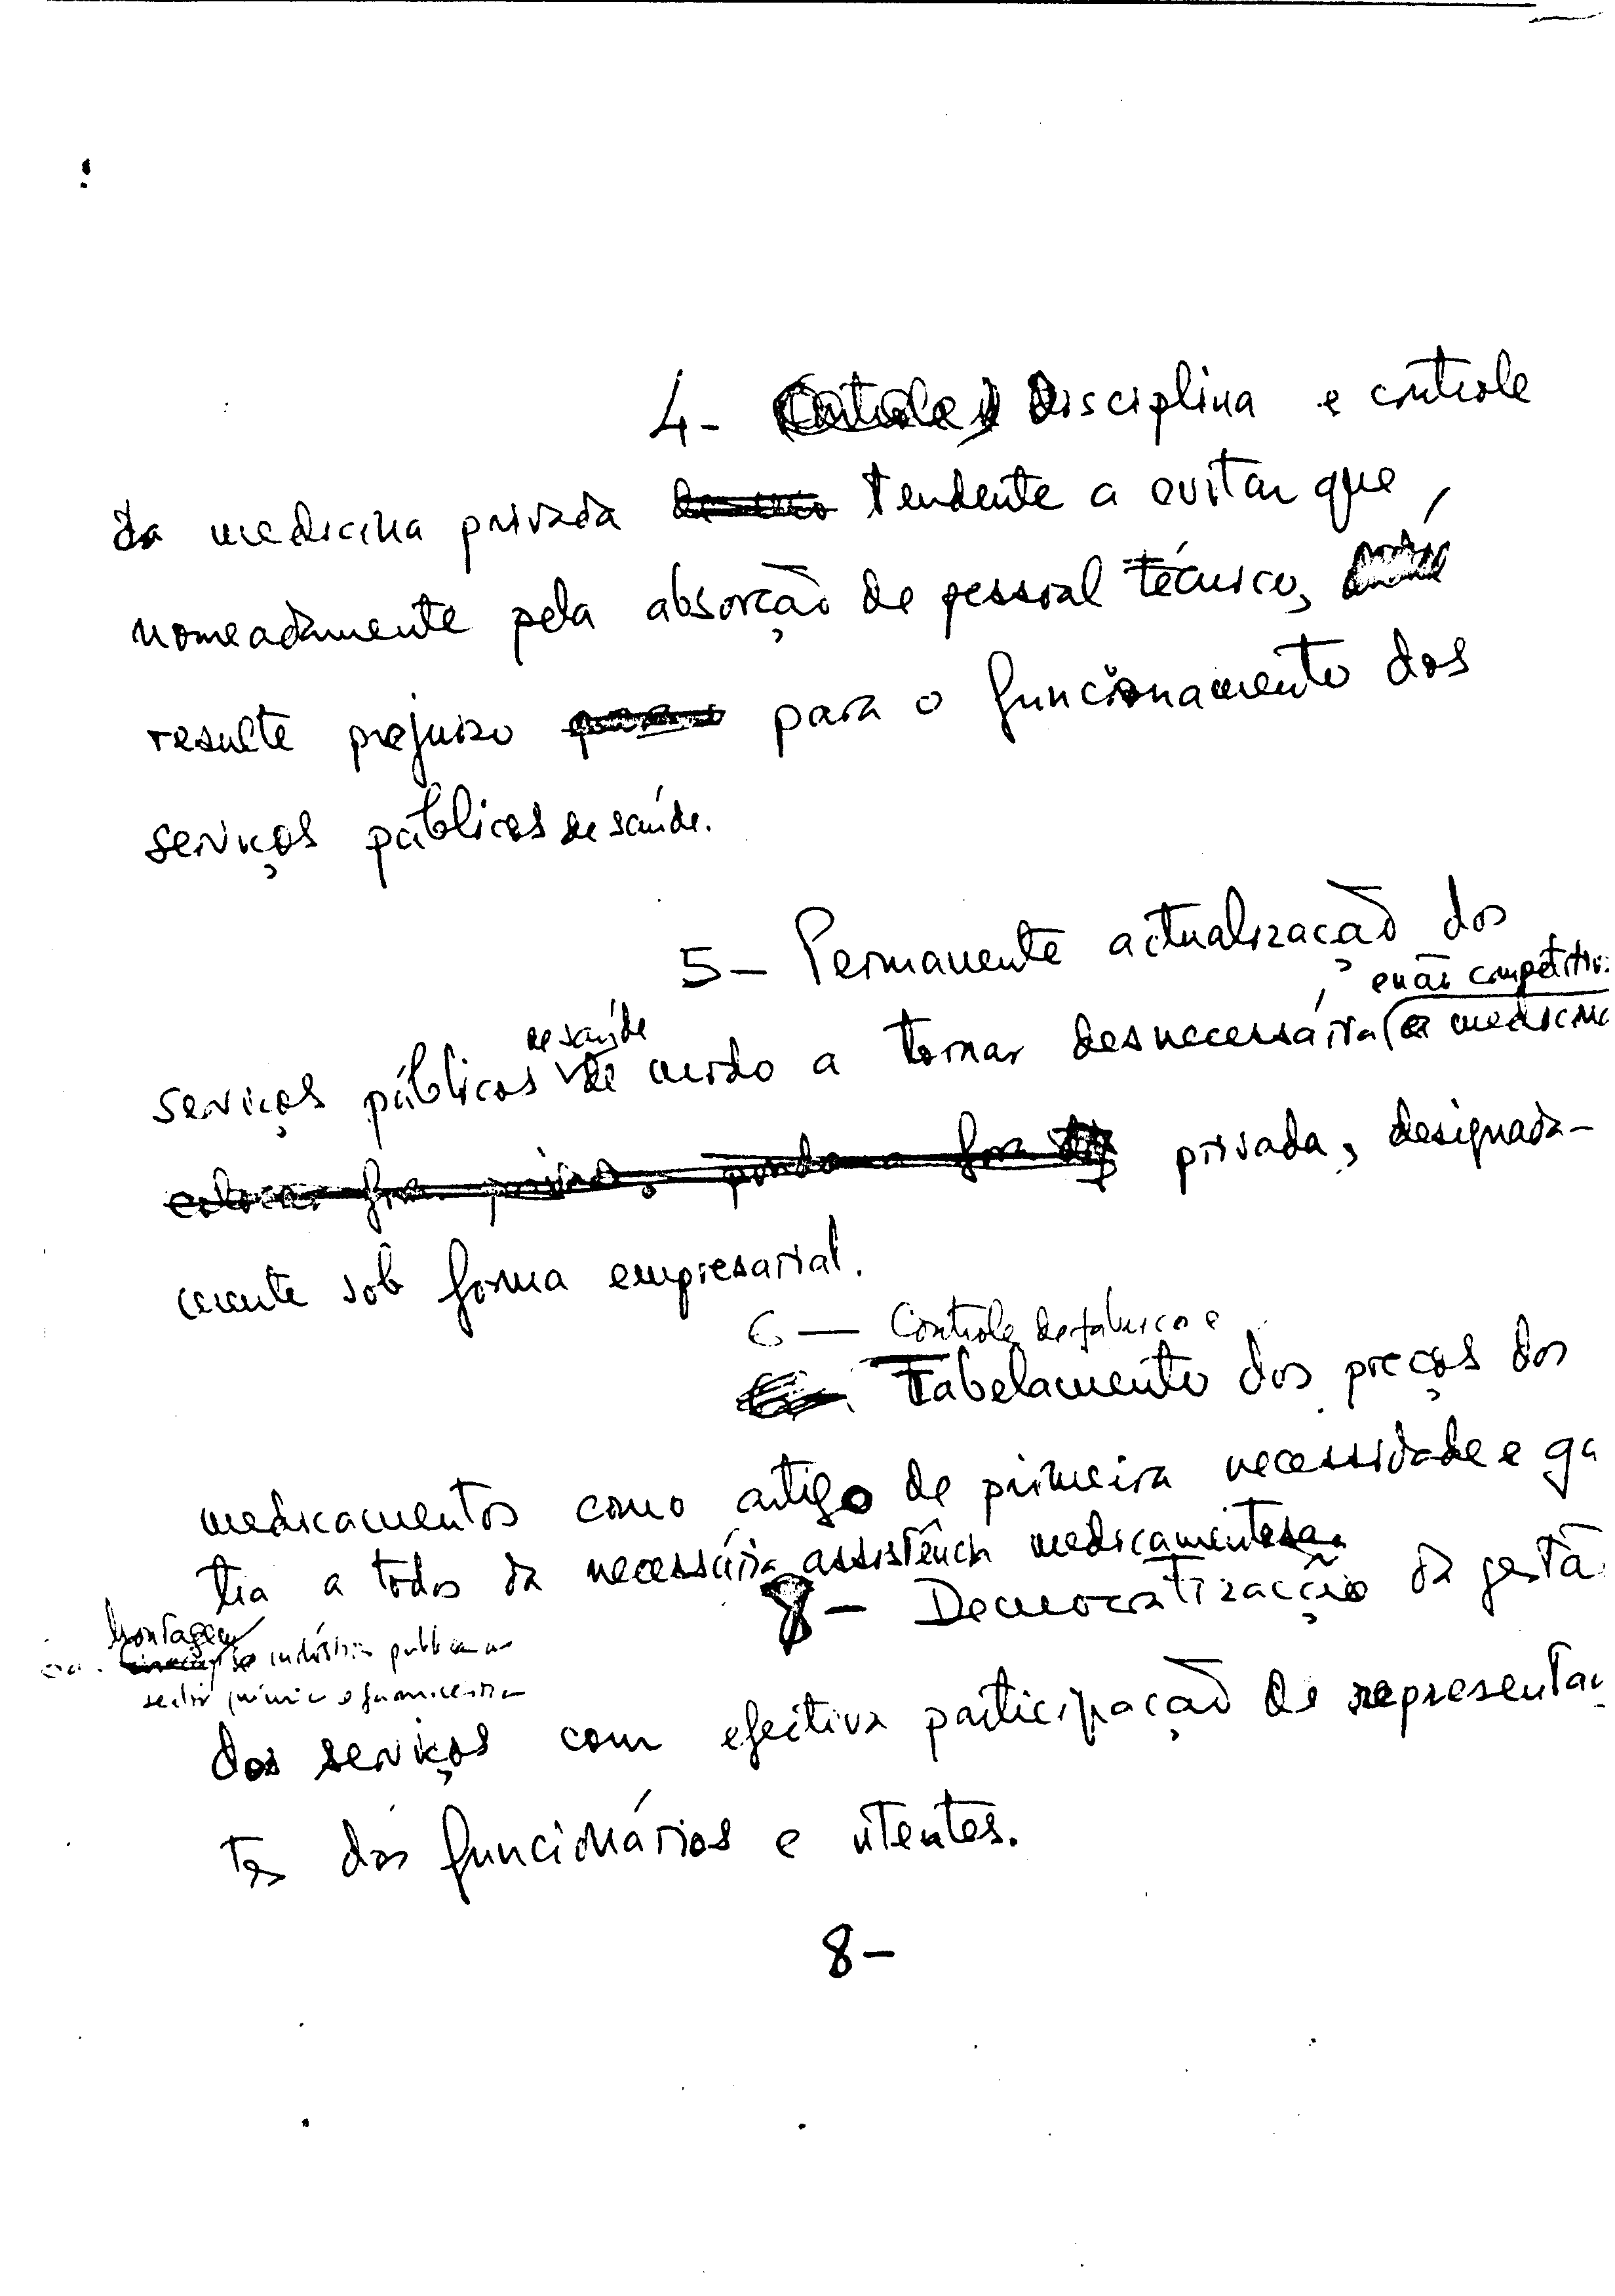 4- Disciplina e controle
da medicina privada tendente a evitar que,
nomeadamente pela absorção de pessoal técnico,
resulte prejuizo para o funcionamento dos
serviços públicos de saúde.
5- Permanente actualização dos
e não competitiva
serviços públicos de saúde de modo a tornar desnecessária a medicina
privada, designada-
mente sob forma empresarial.
6 — Controle de fabrico e
Tabelamento dos preços dos
medicamentos como artigo de primeira necessidade e ga
tia a todos da necessária assistência medicamentosa.
8- Democratização da gestã
Montagem
de indústria publica no
sector químico e farmacêutico
dos serviços com efectiva participação de representan
tes dos funcionários e utentes.
8-